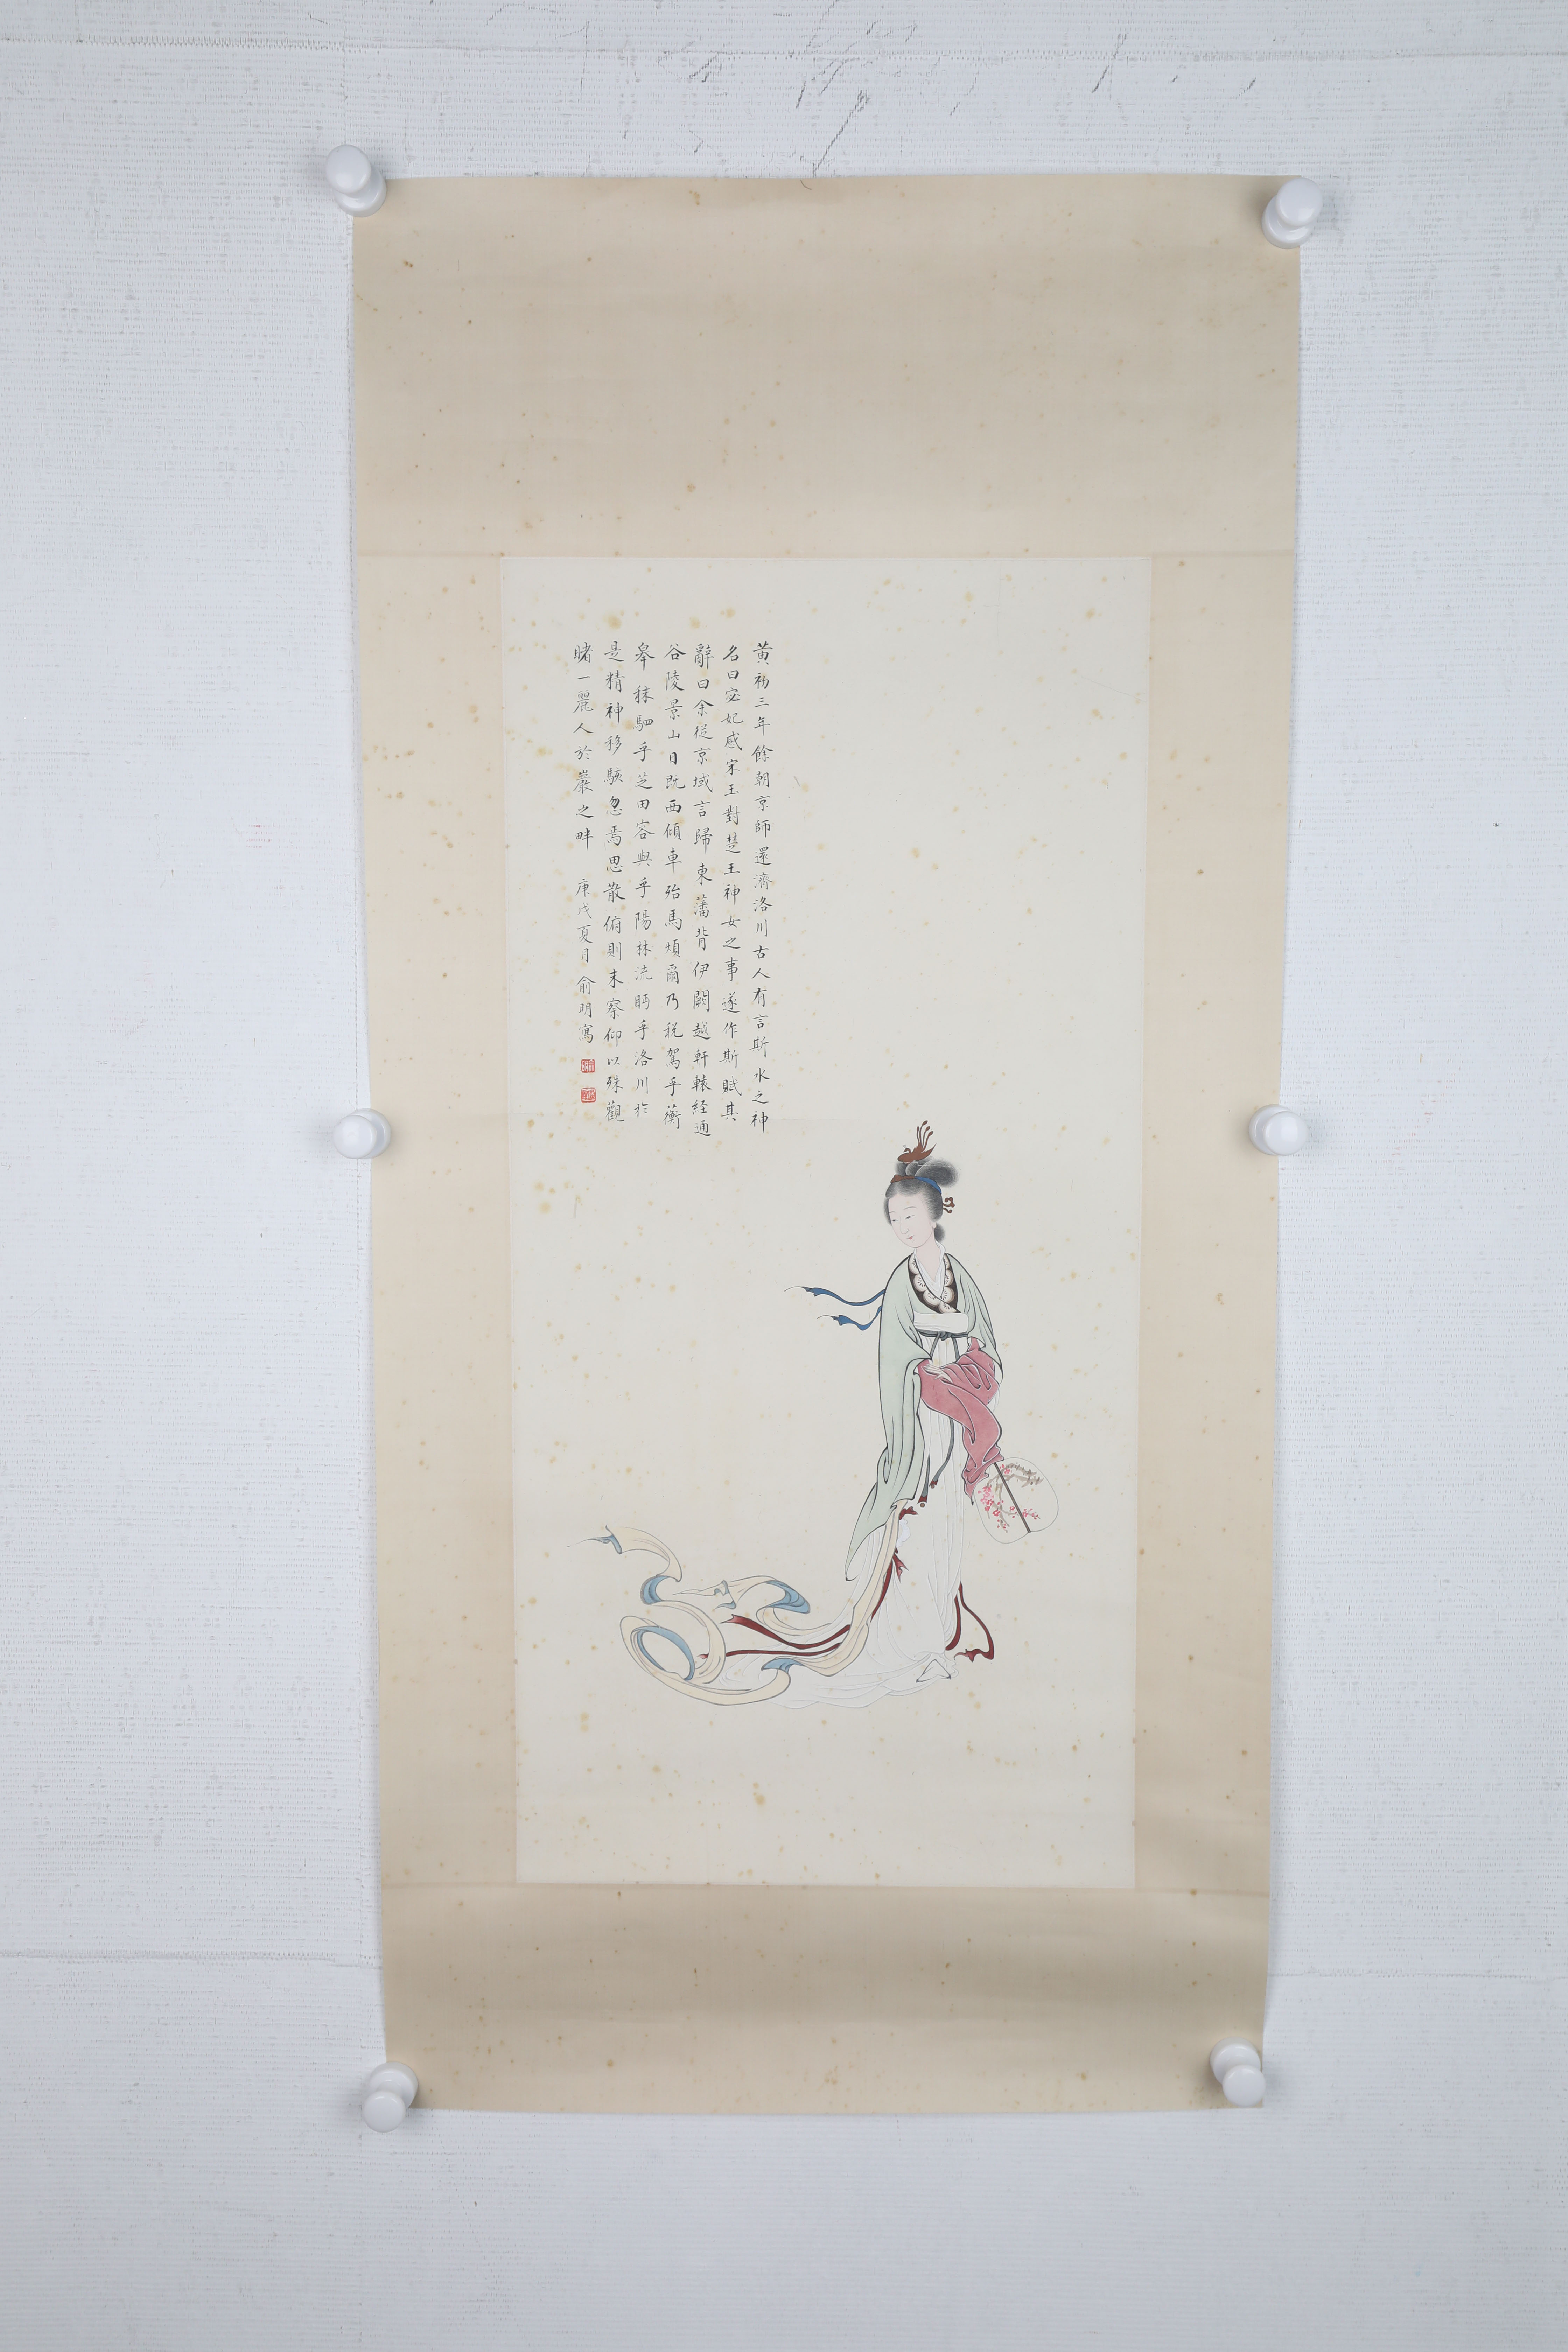 黃初三年餘朝京師還濟洛川古人有言斯水之神
名曰宓妃感宋玉對楚王神女之事遂作斯賦其
辭曰余從京域言歸東藩背伊闕越軒轅経通
谷陵景山日既西傾車殆馬煩爾乃税駕乎蘅
皋秣駟乎芝田容與乎陽林流眄乎洛川於
是精神移駭忽焉思散俯則未察仰以殊觀
睹一麗人於巖之畔 庚戌夏月 俞明寫